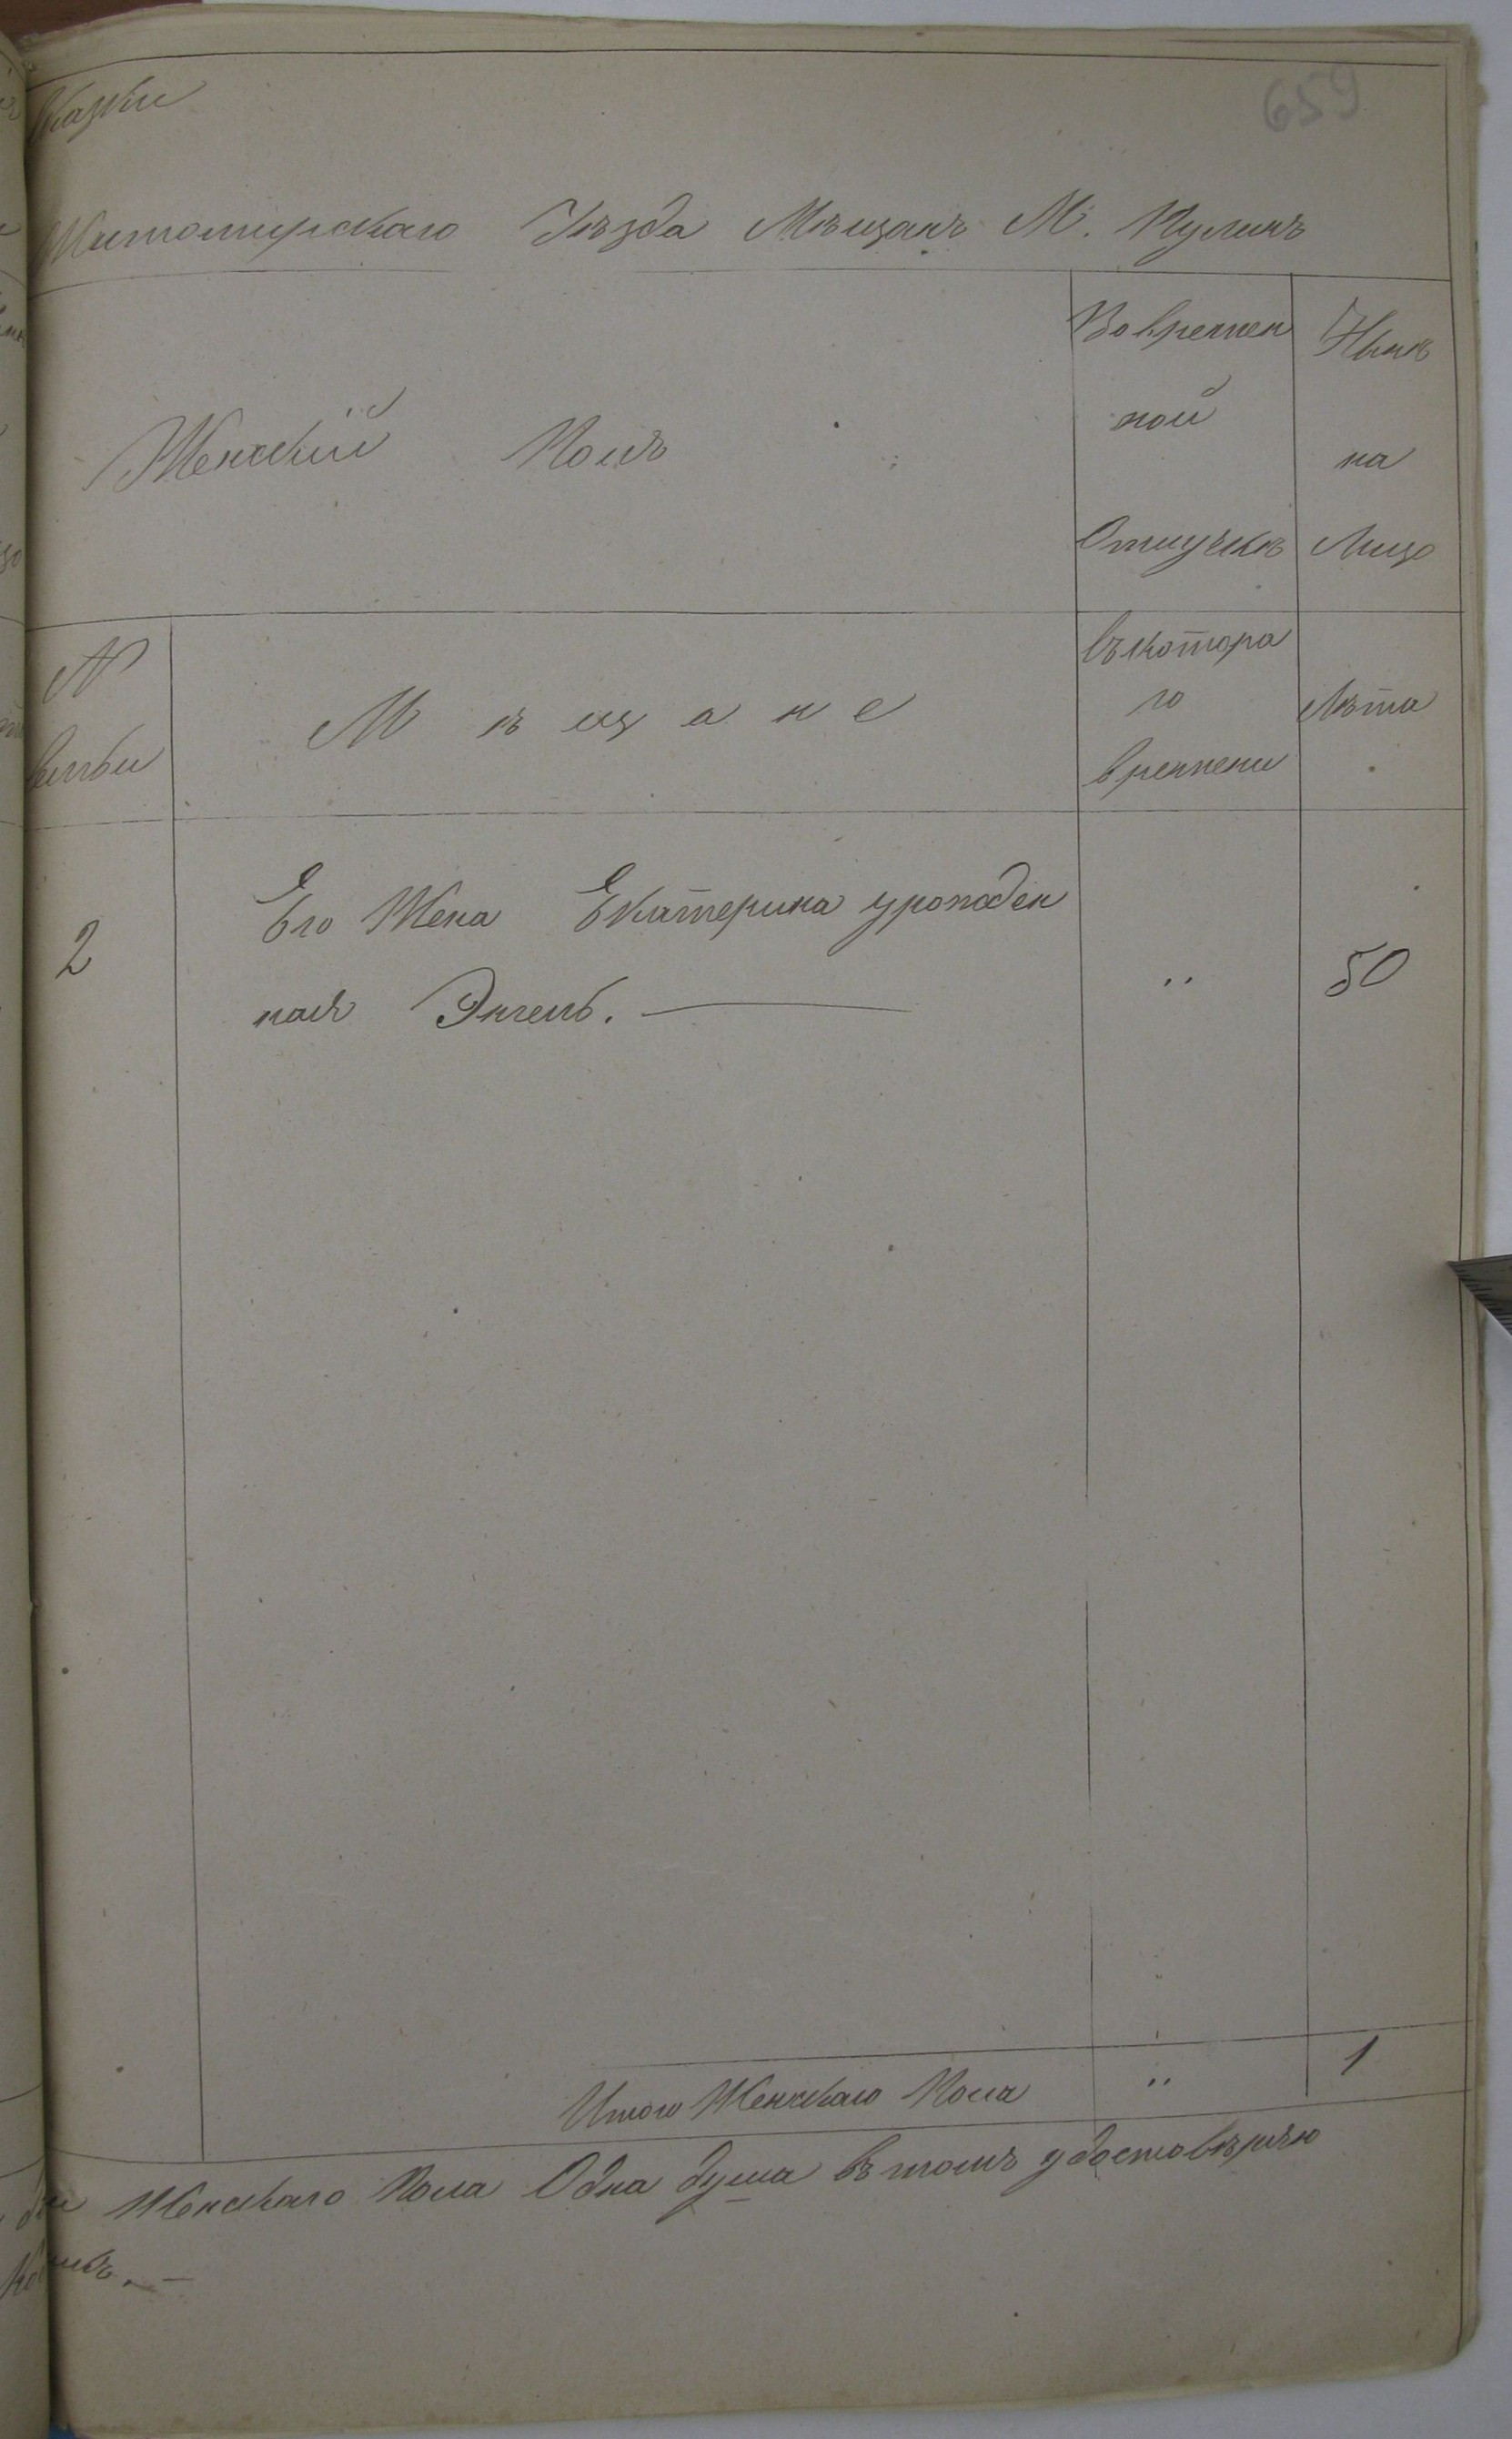 659
сказки
Житомирскаго Уѣзда Мѣщанъ М. Кулинъ
Женскій Полъ
Во времен
ной
Отлучкѣ
Нынѣ
на
Лицо
№
семьи
Мѣщане
въ котора
го
времени
Лѣта
2
Его Жена Екатерина урожден
ная Энгель.
„
50
Итого Женскаго Пола „ 1
Женскаго Пола Одна душа въ томъ удостовѣряю